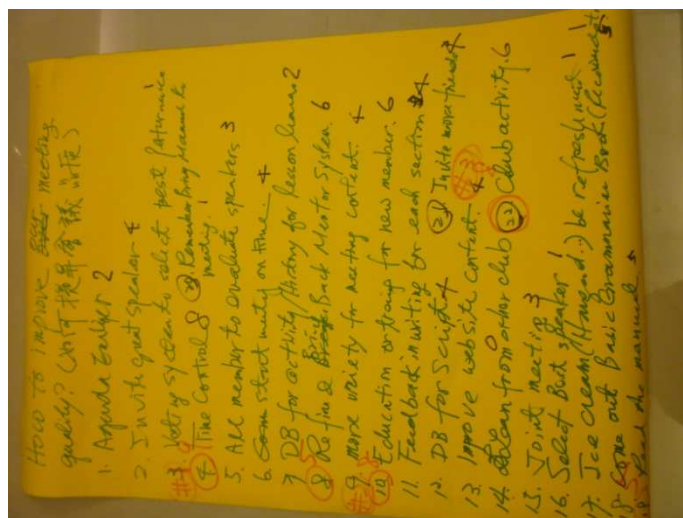 How to improve meeting
quality? (如何提昇會議品質)
1. Agenda Earlier 2
2. Invite guest speaker 4
3. Voting system to select best
4. Time Control 8 20. Remember Bring Manual to
meeting. 1
5. All member to evaluate speakers 3
6. start meeting on time. 4
7. DB for activity/History for lesson learn 2
8. Refine & Bring Back Mentor System. 6
#9 more variety for meeting content. 4
10. Education or trainings for new member. 6
11. Feedback in writing for each section 4
12. DB for Script 4 21. Invite more friends 4
13. Improve website content. 4
14. Learn from other club 22. Club activity. 6
15. Joint meeting 3
16. Select Best speaker 1
17. Ice cream ( ..) be refreshment 1
18. Come out Basic Grammarian Book
Read the manual 5